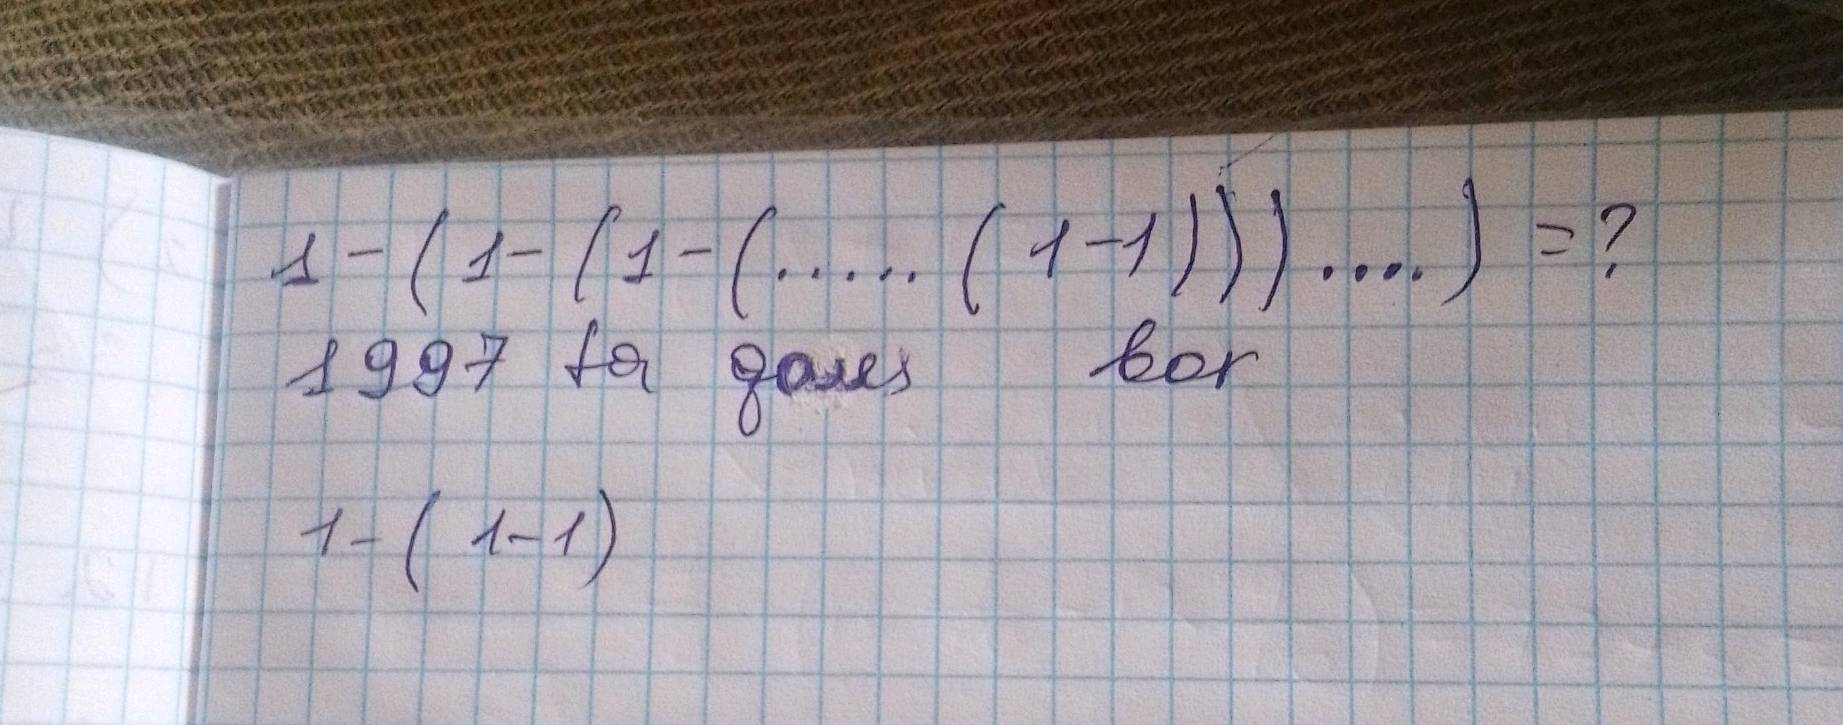 1-(1-(1-(.....(1-1)))....)=?
1997 ta qavs bor
1-(1-1)